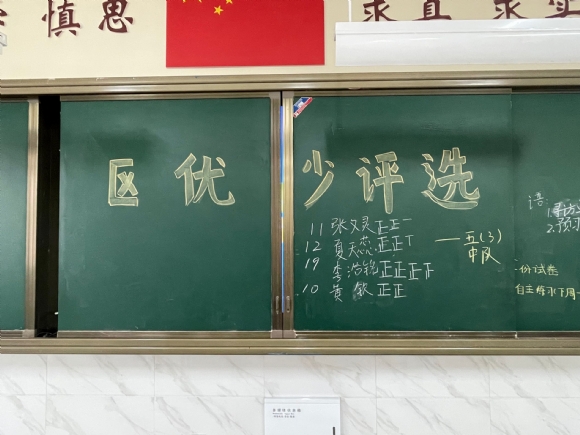 慎思
求真 求实
区优少评选
11 张文灵 正正一
12 夏天恋 正正丅
19 李浩铭 正正正下
10 黄敏 正正
——五(3)
中队
语
2.预习
份试卷
自主练水下周一